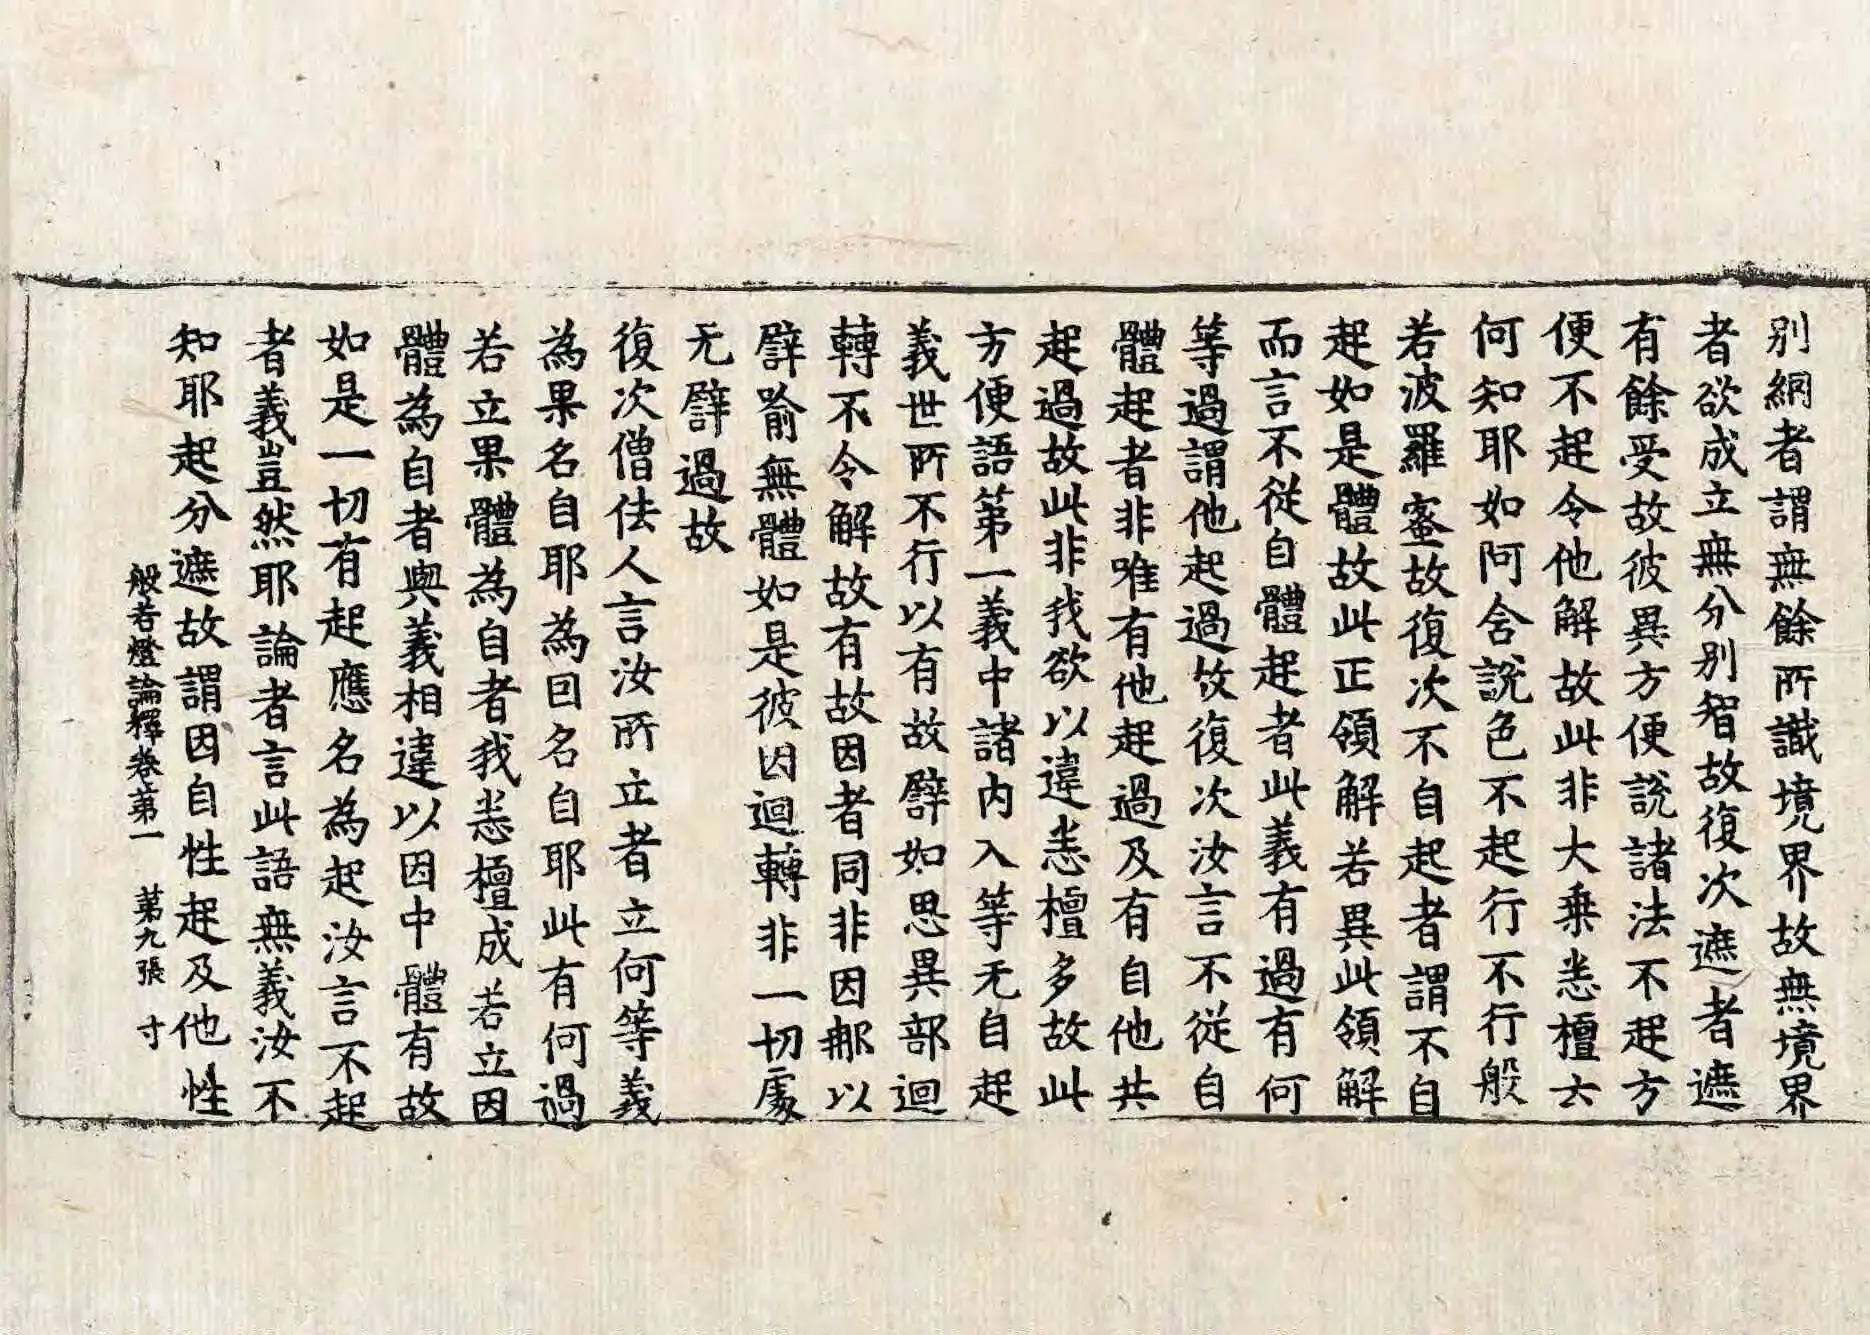 別網者謂無餘所識境界故無境界
者欲成立無分別智故復次遮者遮
有餘受故彼異方便說諸法不起方
便不起令他解故此非大乗悉檀六
何知耶如阿含說色不起行不行般
若波羅蜜故復次不自起者謂不自
起如是體故此正領解若異此領解
而言不従自體起者此義有過有何
等過謂他起過故復次汝言不従自
體起者非唯有他起過及有自他共
起過故此非我欲以違悉檀多故此
方便語第一義中諸内入等无自起
義世所不行以有故譬如思異部迴
轉不令解故有故因者同非因耶以
譬喻無體如是彼因迴轉非一切處
无譬過故
復次僧佉人言汝所立者立何等義
為果名自耶為因名自耶此有何過
若立果體為自者我悉檀成若立因
體為自者與義相違以因中體有故
如是一切有起應名為起汝言不起
者義豈然耶論者言此語無義汝不
知耶起分遮故謂因自性起及他性
般若燈論釋卷第一 第九張 寸